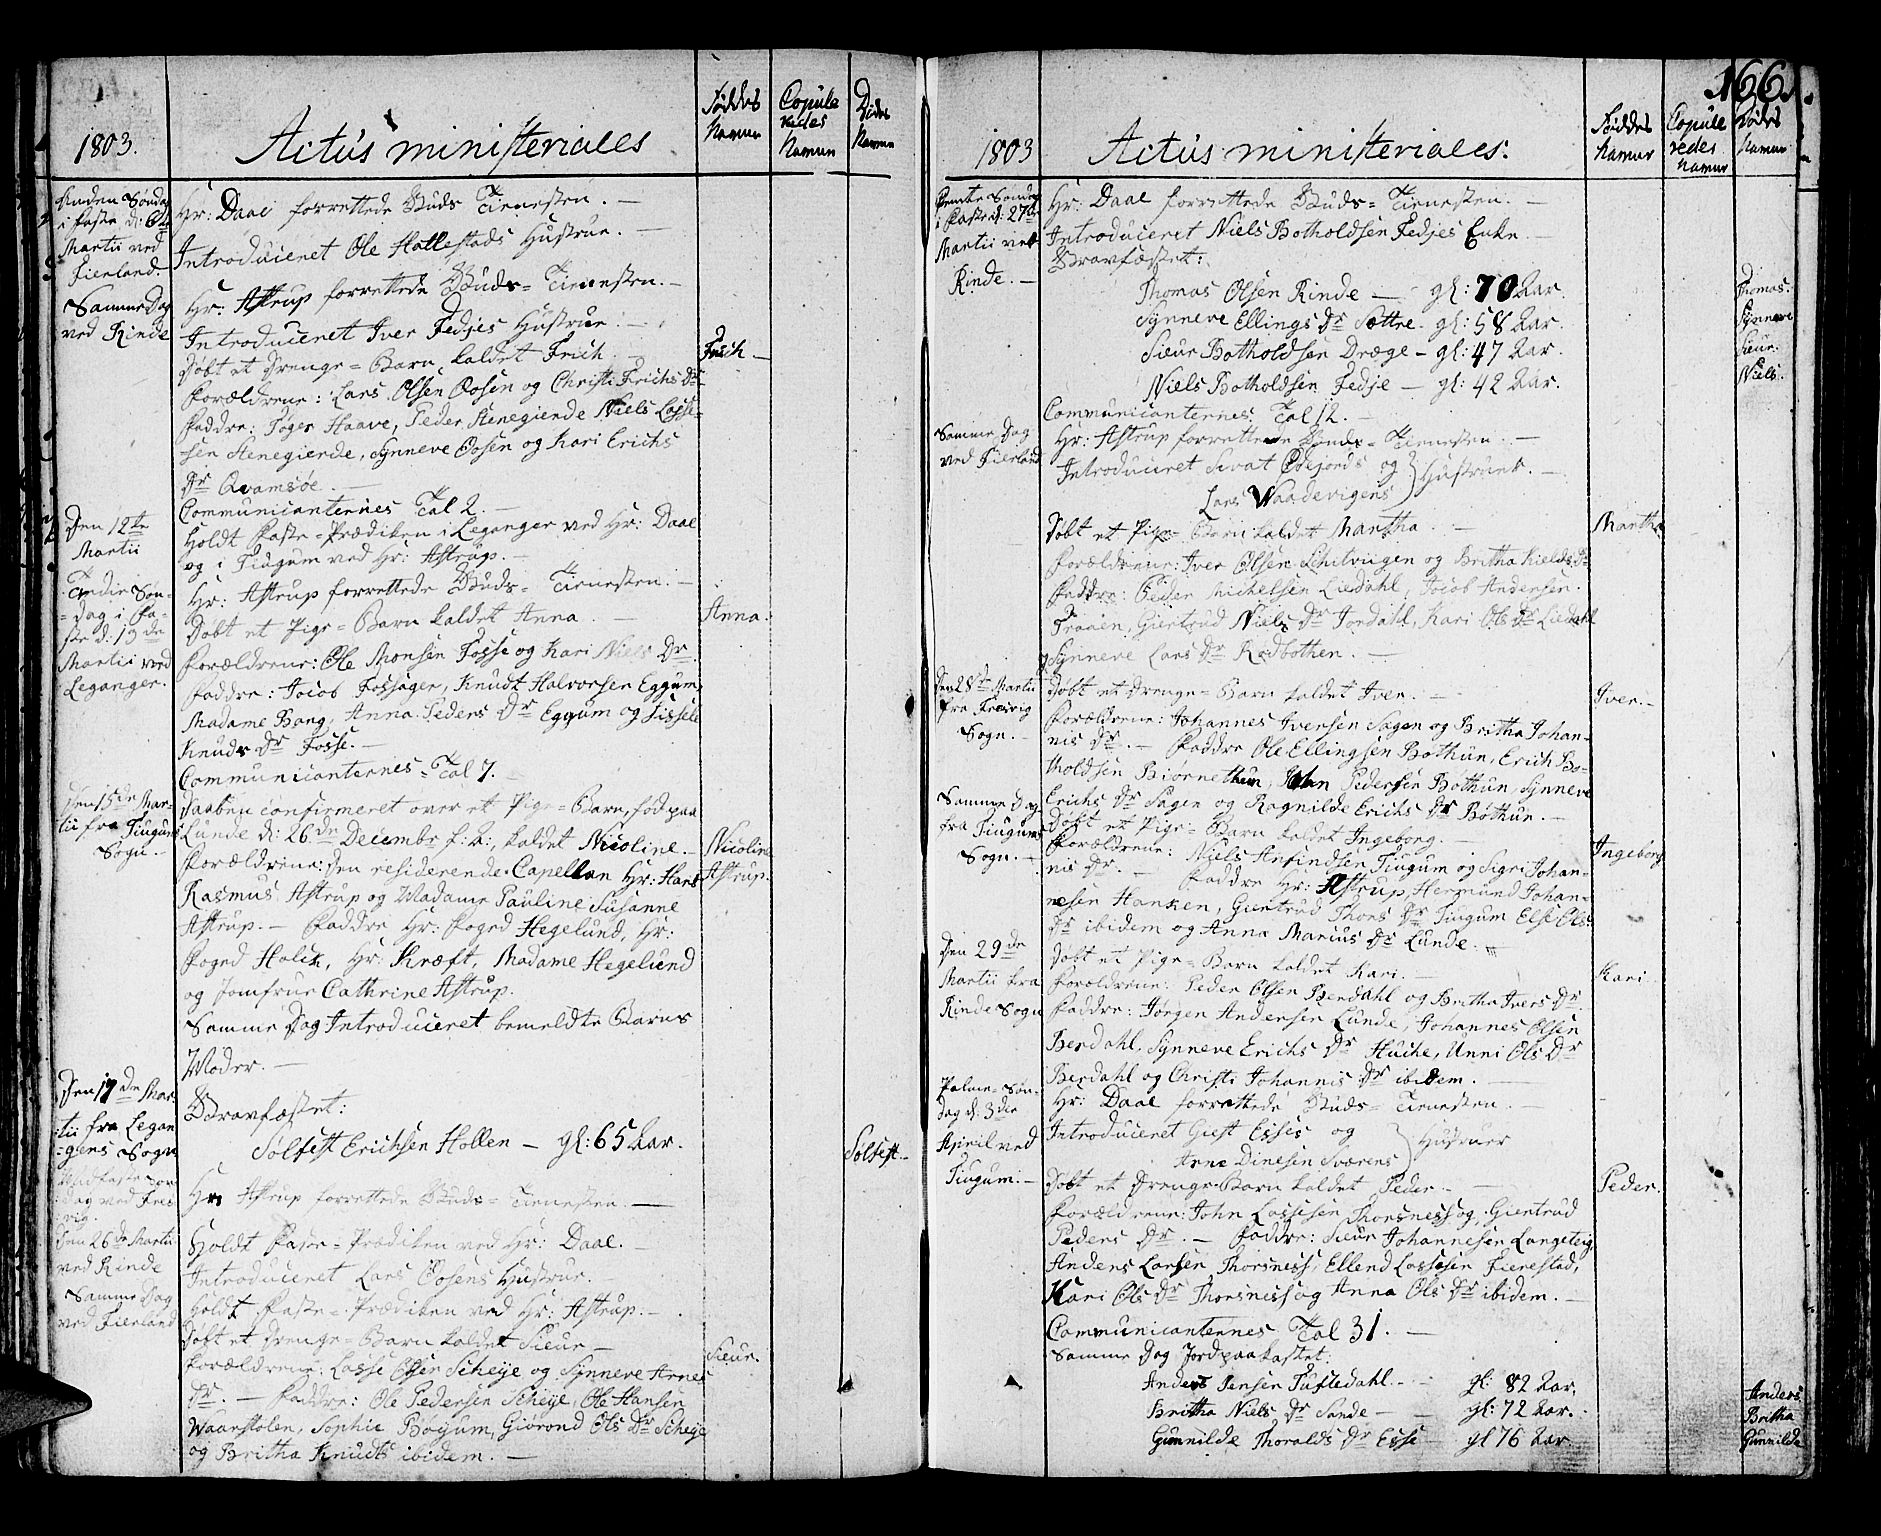 1803.
Actus ministeriales
Føddes Namur
Copule redes Namun
Dødes Namun
Anden Søndag
i Faste d: 6te
Martii ved
Fierland.
Hr: Daae forrettede Guds-Tienesten. —
Introduceret Ole Hallestads Hustrue. —
Samme Dag
ved Rinde
Hr: Astrup forrettede Guds-Tienesten. —
Introduceret Iver Fedjes Hustrue. —
Døbt et Drenge-Barn kaldet Frich.
Frich —
Forældrene: Lars Olsen Oosen og Christi Frichs Dr
Faddre: Toger Haave, Peder Stenegierde Niels Lasse-
sen Stenegierde, Synneve Oosen og Kari Erichs
Dr Qvamsøe. —
Communicanternes Tal 2. —
Den 12te
Martii
Holdt Faste-Prædiken i Leganger ved Hr: Daae
og i Tiugum ved Hr: Astrup. —
Tredie Søn-
dag i Fa-
ste d: 13de
Martii ved
Leganger.
Hr: Astrup forrettede Guds-Tienesten. —
Døbt et Pige-Barn kaldet Anna. —
Anna.
Forældrene: Ole Monsen Fosse og Kari Niels Dr
Faddre: Jacob Fossøger, Knudt Halvorsen Eggum,
Madame Bang, Anna Peders Dr Eggum og Sissele
Knuds Dr Fosse. —
Communicanternes Tal 7. —
Den 15de Mar-
tii fra Tiugums
Sogn. —
Daaben confirmeret over et Pige-Barn, fød paa
Lunde d: 26de Decembr f: A:, kaldet Nicoline. —
Nicoline Astrup.
Forældrene: Den residerende Capellan Hr: Hans
Rasmus Astrup og Madame Pauline Susanne
Astrup. — Faddre Hr: Foged Hegelund, Hr:
Foged Holck, Hr: Kræft, Madame Hegelund
og Jomfrue Cathrine Astrup.
Samme Dag Introduceret bemeldte Barns
Moder. —
Den 17de Mar-
tii fra Legan-
gens Sogn
Gravfæstet:
Solfest Erichsen Hollen — gl: 65 Aar.
Solfest —
Midfaste Søn-
dag ved Fei-
vig.
Hr: Astrup forrettede Guds-Tienesten. —
Den 26de Martii
ved Rinde
Holdt Faste-Prædiken ved Hr: Daae. —
Introduceret Lars Oosens Hustrue. —
Samme Dag
ved Fierland
Holdt Faste-Prædiken ved Hr: Astrup. —
Døbt et Drenge-Barn kaldet Sieur —
Sieur.
Forældrene: Lasse Olsen Scheije og Synneve Arnes
Dr. — Faddre: Ole Pedersen Scheije, Ole Hansen
Waarstolen, Sophie Bøeyum, Giørond Ols Dr Scheije
og Britha Knudts ibidem. —
166.
1803
Actus ministeriales:
Føddes Namur
Copule redes Namur
Dødes Namur
Femte Søndag
i Faste d: 27de
Martii ved
Rinde. —
Hr: Daae forrettede Guds-Tienesten. —
Introduceret Niels Botholdsen Fedjes Enke. —
Gravfæstet:
Thomas Olsen Rinde — gl: 70 Aar.
Thomas.
Synneve Ellings Dr Sættre. gl: 58 Aar.
Synneve
Sieur Botholdsen Dræge — gl: 47 Aar.
Sieur.
Niels Botholdsen Fedje — gl: 42 Aar.
Niels.
Communicanternes Tal 12. —
Samme Dag
ved Fierland
Hr: Astrup forrettede Guds-Tienesten. —
Introduceret Sivat Ødejords og
Lars Waadevigens } Hustruer. —
Døbt et Pige-Barn kaldet Martha. —
Martha
Forældrene: Iver Olsen Schitviigen og Britha Kields Dr
Faddre: Peder Michelsen Liedahl, Jacob Andersen
Fraaen, Giertrud Niels Dr Jordahl, Kari Ols Dr Liedahl
og Synneve Lars Dr Rødbotten. —
Den 28de Martii
fra Freivig
Sogn. —
Døbt et Drenge-Barn kaldet Iver. —
Iver. —
Forældrene: Johannes Iversen Sagen og Britha Johan-
nis Dr. — Faddre Ole Ellingsen Bothun, Erich Bo-
tholdsen Biørnethun, John Pedersen Bothun, Synneve
Erichs Dr Sagen og Ragnilde Erichs Dr Bothun. —
Samme Dag
fra Tiugums
Sogn. —
Døbt et Pige-Barn kaldet Ingeborg. —
Ingeborg
Forældrene: Niels Anfindsen Tiugum og Sigri Johan-
nis Dr. — Faddre Hr: Astrup, Hermund Johan-
nesen Hanken, Giertrud Thors Dr Tiugum Else Ols
Dr ibidem og Anna Marcus Dr Lunde.
Den 29de
Martii fra
Rinde Sogn
Døbt et Pige-Barn kaldet Kari. —
Kari
Forældrene: Peder Olsen Berdahl og Britha Ivers Dr
Faddre: Jørgen Andersen Lunde, Johannes Olsen
Berdahl, Synneve Erichs Dr Huche, Unni Ols Dr
Berdahl og Christi Johannis Dr ibidem. —
Palme-Søn-
dag d: 3die
April ved
Tiugum. —
Hr: Daae forrettede Guds-Tienesten. —
Introduceret Giest Esses og
Arne Dinesen Sværens } Hustruer
Døbt et Drenge-Barn kaldet Peder. —
Peder.
Forældrene: John Lassesen Thorsness og Giertrud
Peders Dr. — Faddre: Sieur Johannesen Langeteig,
Anders Larsen Thorsness, Ellend Lassesen Fierestad,
Kari Ols Dr Thorsness og Anna Ols Dr ibidem. —
Communicanternes Tal 31. —
Samme Dag Jordpaakastet.
Anders Jensen Tuftedahl. — gl: 82 Aar.
Anders
Britha Niels Dr Sande — gl: 72 Aar.
Britha
Gunnilde Thoralds Dr Esse gl 76 Aar.
Gunnilde